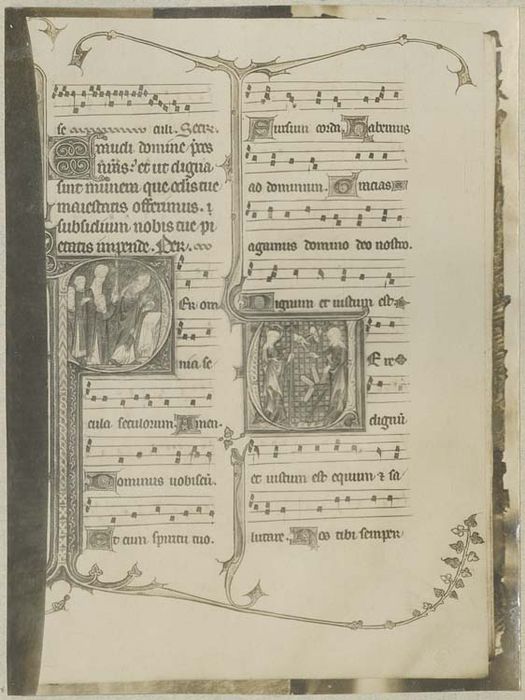 se culi. Secr.
Emudi domine p̄ces
n̄r̄as: et ut digna
sint munera que oculis tue
maiestatis offerimus. ⁊
subsidium nobis tue pi
etatis impende. Per.
Per om
nia se
cula seculorum. Amen.
Dominus uobiscū.
Et cum spiritu tuo.
Sursum corda. Habemus
ad dominum. Gracias
agamus domino deo nostro.
Dignum et iustum est
Uere
dignū
et iustum est equum ⁊ sa
lutare. Nos tibi semper